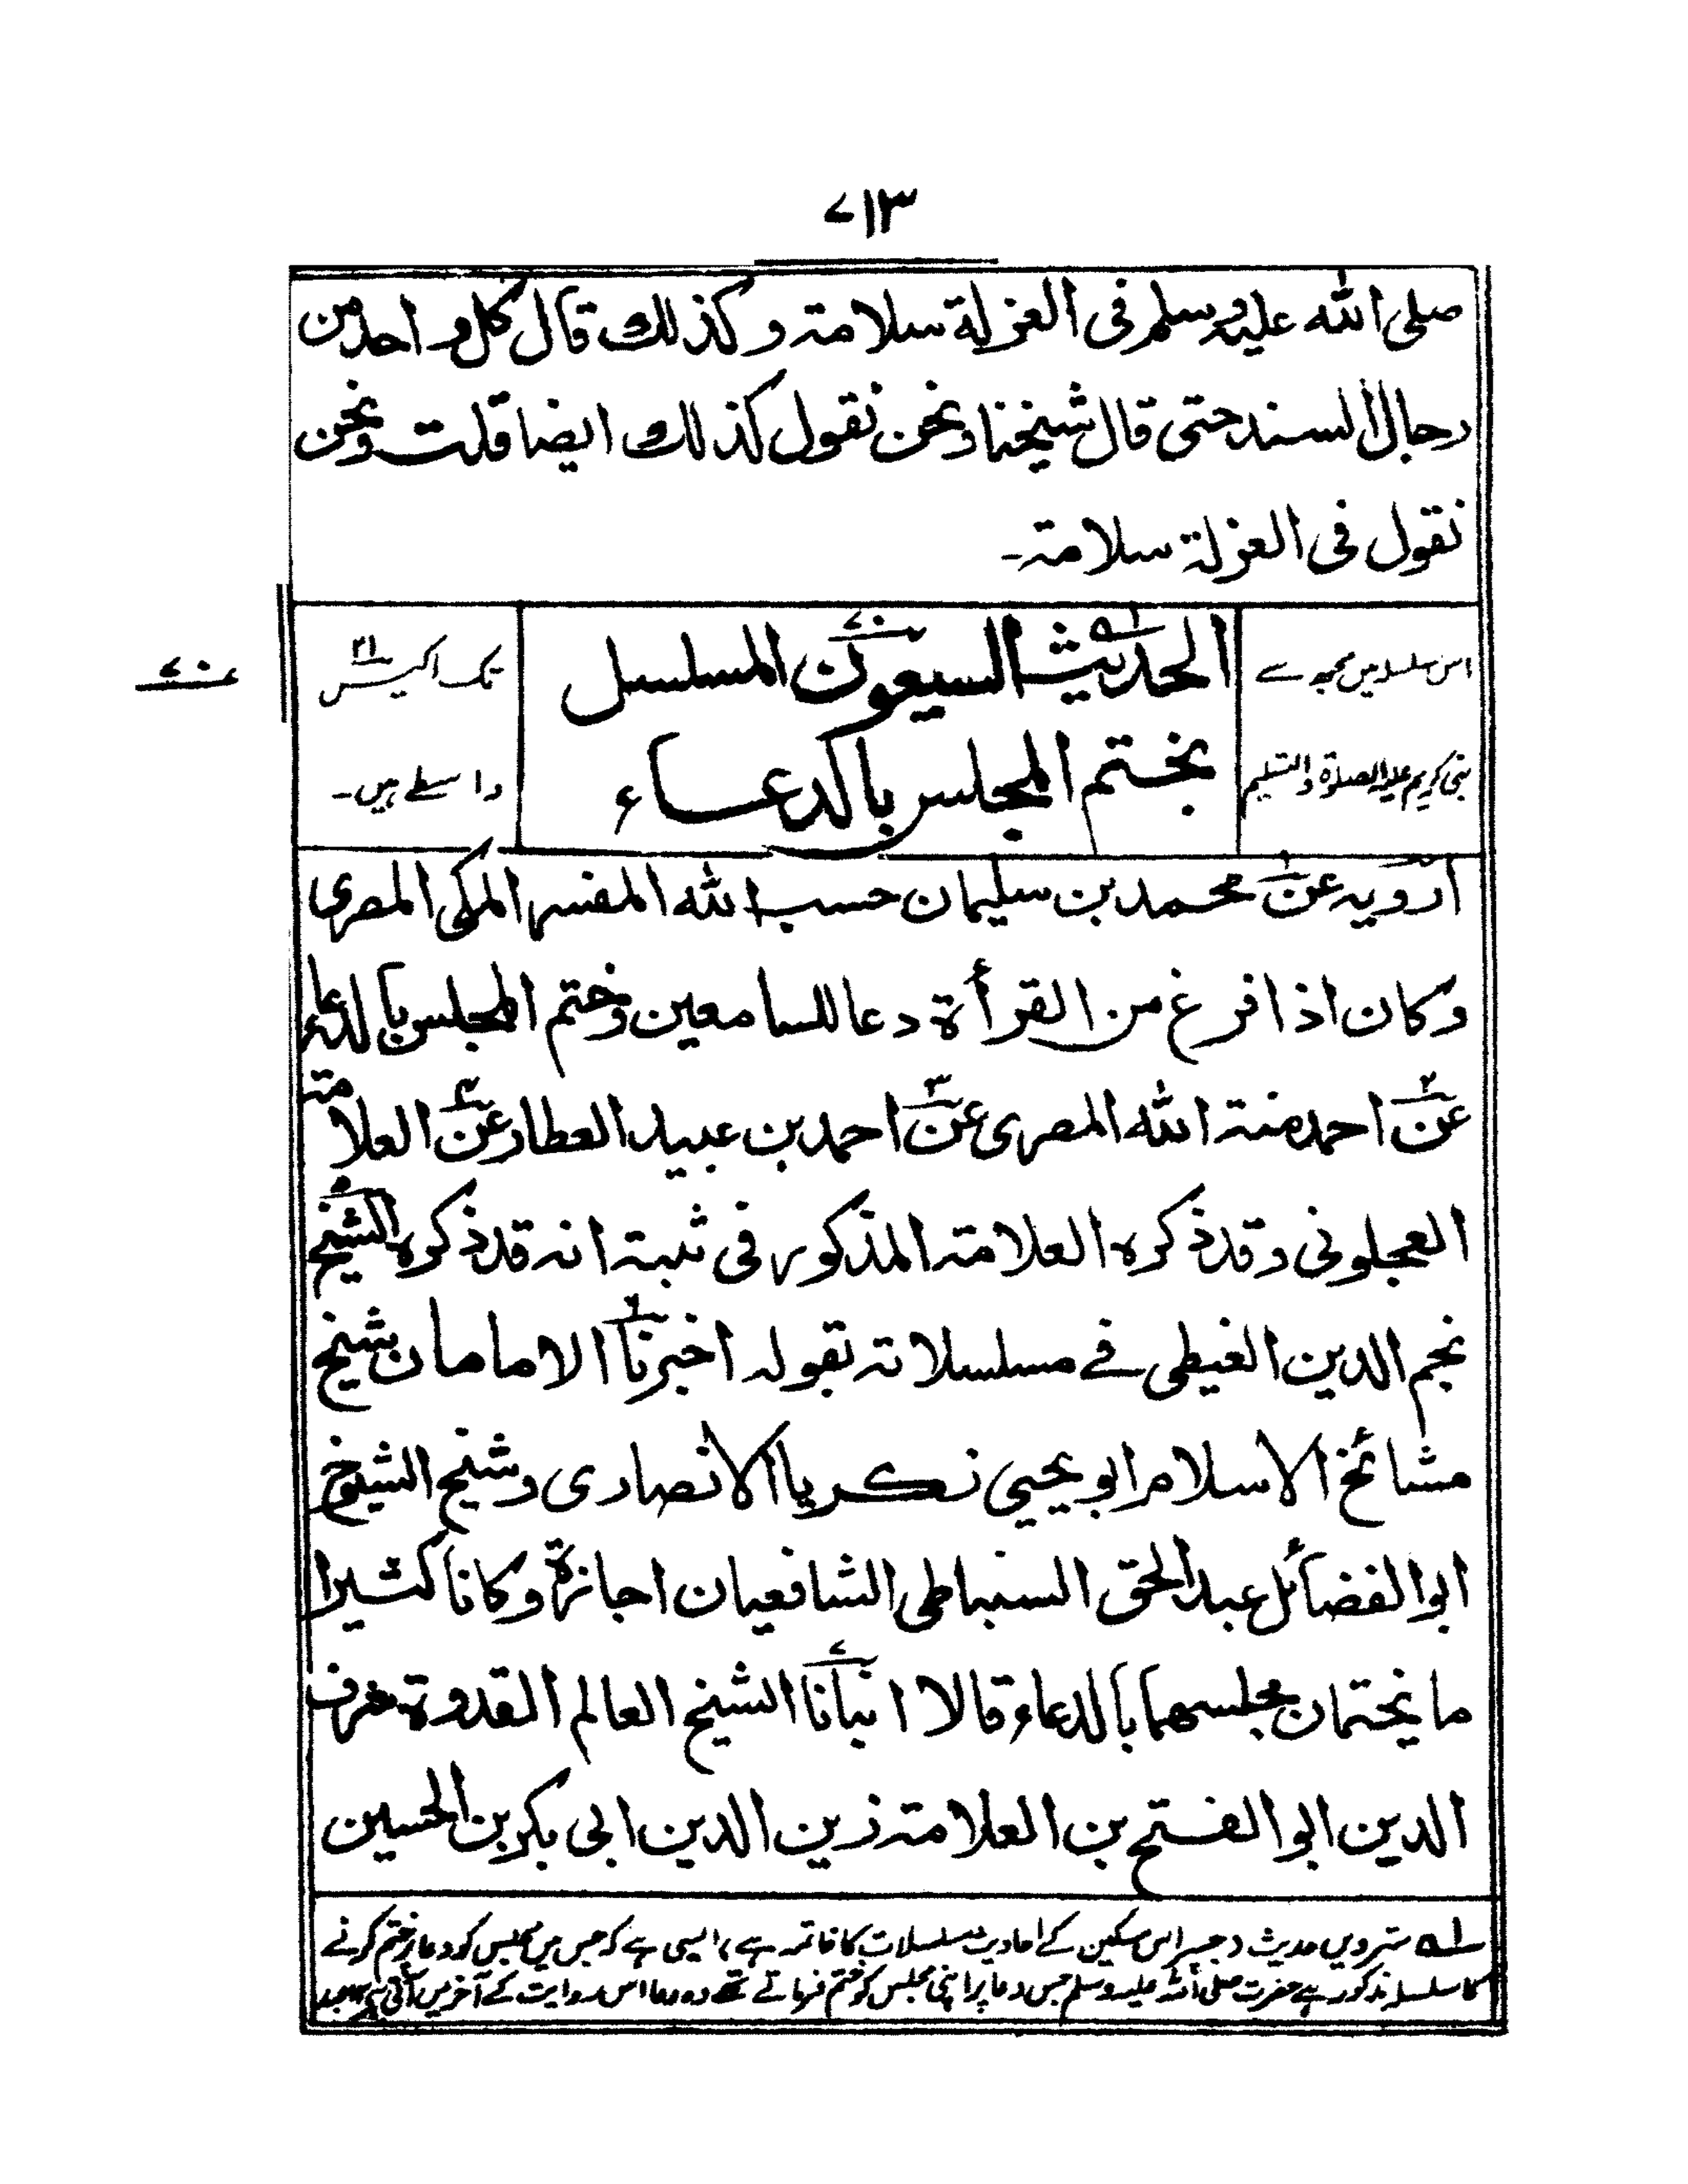 ٧١٣
صلى الله عليه وسلم فى العزلة سلامته وكذلك قال كل واحد من
رجال السند حتى قال شيخنا ونحن نقول كذلك ايضا قلت ونحن
نقول فى العزلة سلامته۔
اس سلسلہ میں مجھ سے
نبی کریم علیہ الصلاۃ والتسلیم
الحديث السبعون المسلسل
بختم المجلس بالدعاء
تک اکیس ٢١
واسطے ہیں۔
٧٠
ارويه عن محمد بن سليمان حسب الله المفسر المكى المصرى
وكان اذا فرغ من القرأة دعا للسامعين وختم المجلس بالدعاء
عن احمد منة الله المصرى عن احمد بن عبيد العطار عن العلامته
العجلونى وقد ذكره العلامته المذكور فى ثبته انه قد ذكره الشيخ
نجم الدين الغيطى فے مسلسلاته بقوله اخبرنا الامامان شيخ
مشائخ الاسلام ابو يحيي زكريا الانصارى وشيخ الشيوخ
ابوالفضائل عبدالحق السنباطى الشافعيان اجازة وكانا كثيرا
ما يختمان مجلسهما بالدعاء قالا انبأنا الشيخ العالم القدوة شرف
الدين ابوالفتح بن العلامته زين الدين ابى بكر بن الحسين
لہ سترویں حدیث جسپر اس مسکین کے احادیث مسلسلات کا خاتمہ ہے، ایسی ہے کہ جس میں مجلس کو دعا پر ختم کرنے
کا سلسلہ مذکور ہے حضرت صلی اللہ علیہ وسلم جس دعا پر اپنی مجلس کو ختم فرماتے تھے وہ دعا اس روایت کے آخر میں آتی ہے